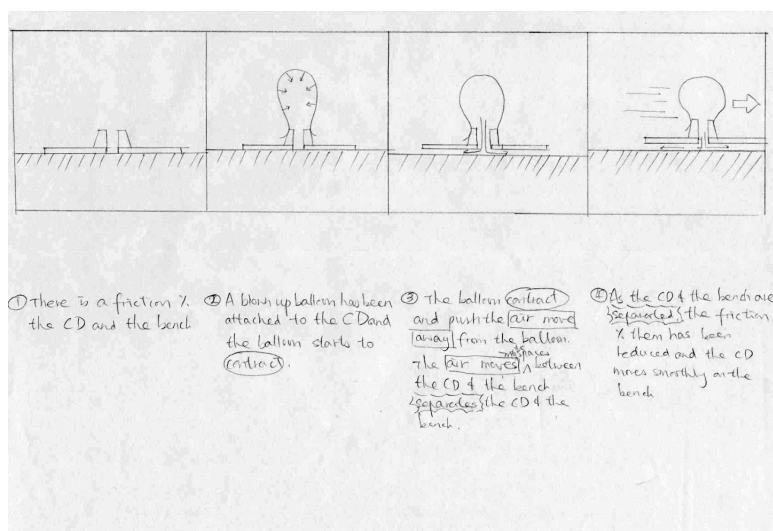 ① There is a friction %
the CD and the bench
② A blown up balloon has been
attached to the CD and
the balloon starts to
contract.
③ The balloon contract
and push the air move
away from the balloon.
The air moves between
the CD & the bench
separates the CD & the
bench.
④ As the CD & the bench are
separated the friction
% them has been
reduced and the CD
moves smoothly on the
bench